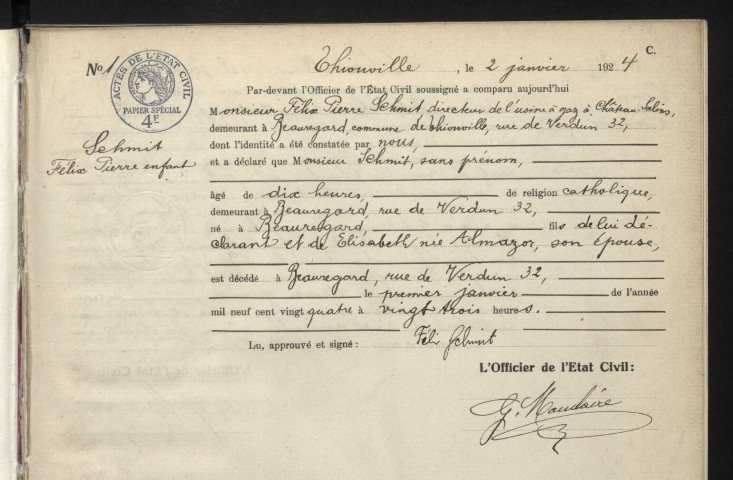 C.
No 1
Thionville, le 2 janvier 1924
ACTES DE L'ÉTAT CIVIL
PAPIER SPÉCIAL
4F
Par-devant l'Officier de l'État Civil soussigné a comparu aujourd'hui
Monsieur Félix Pierre Schmit, directeur de l'usine à gaz à Château-Salins,
demeurant à Beauregard, commune de Thionville, rue de Verdun 32,
dont l'identité a été constatée par nous,
Schmit
Félix Pierre enfant
et a déclaré que Monsieur Schmit, sans prénom,
âgé de dix heures, de religion catholique,
demeurant à Beauregard, rue de Verdun 32,
né à Beauregard, fils de lui dé-
clarant et de Elisabeth née Almazor, son épouse,
est décédé à Beauregard, rue de Verdun 32,
le premier janvier de l'année
mil neuf cent vingt quatre à vingt trois heures.
Lu, approuvé et signé :
Felix Schmit
L'Officier de l'Etat Civil: